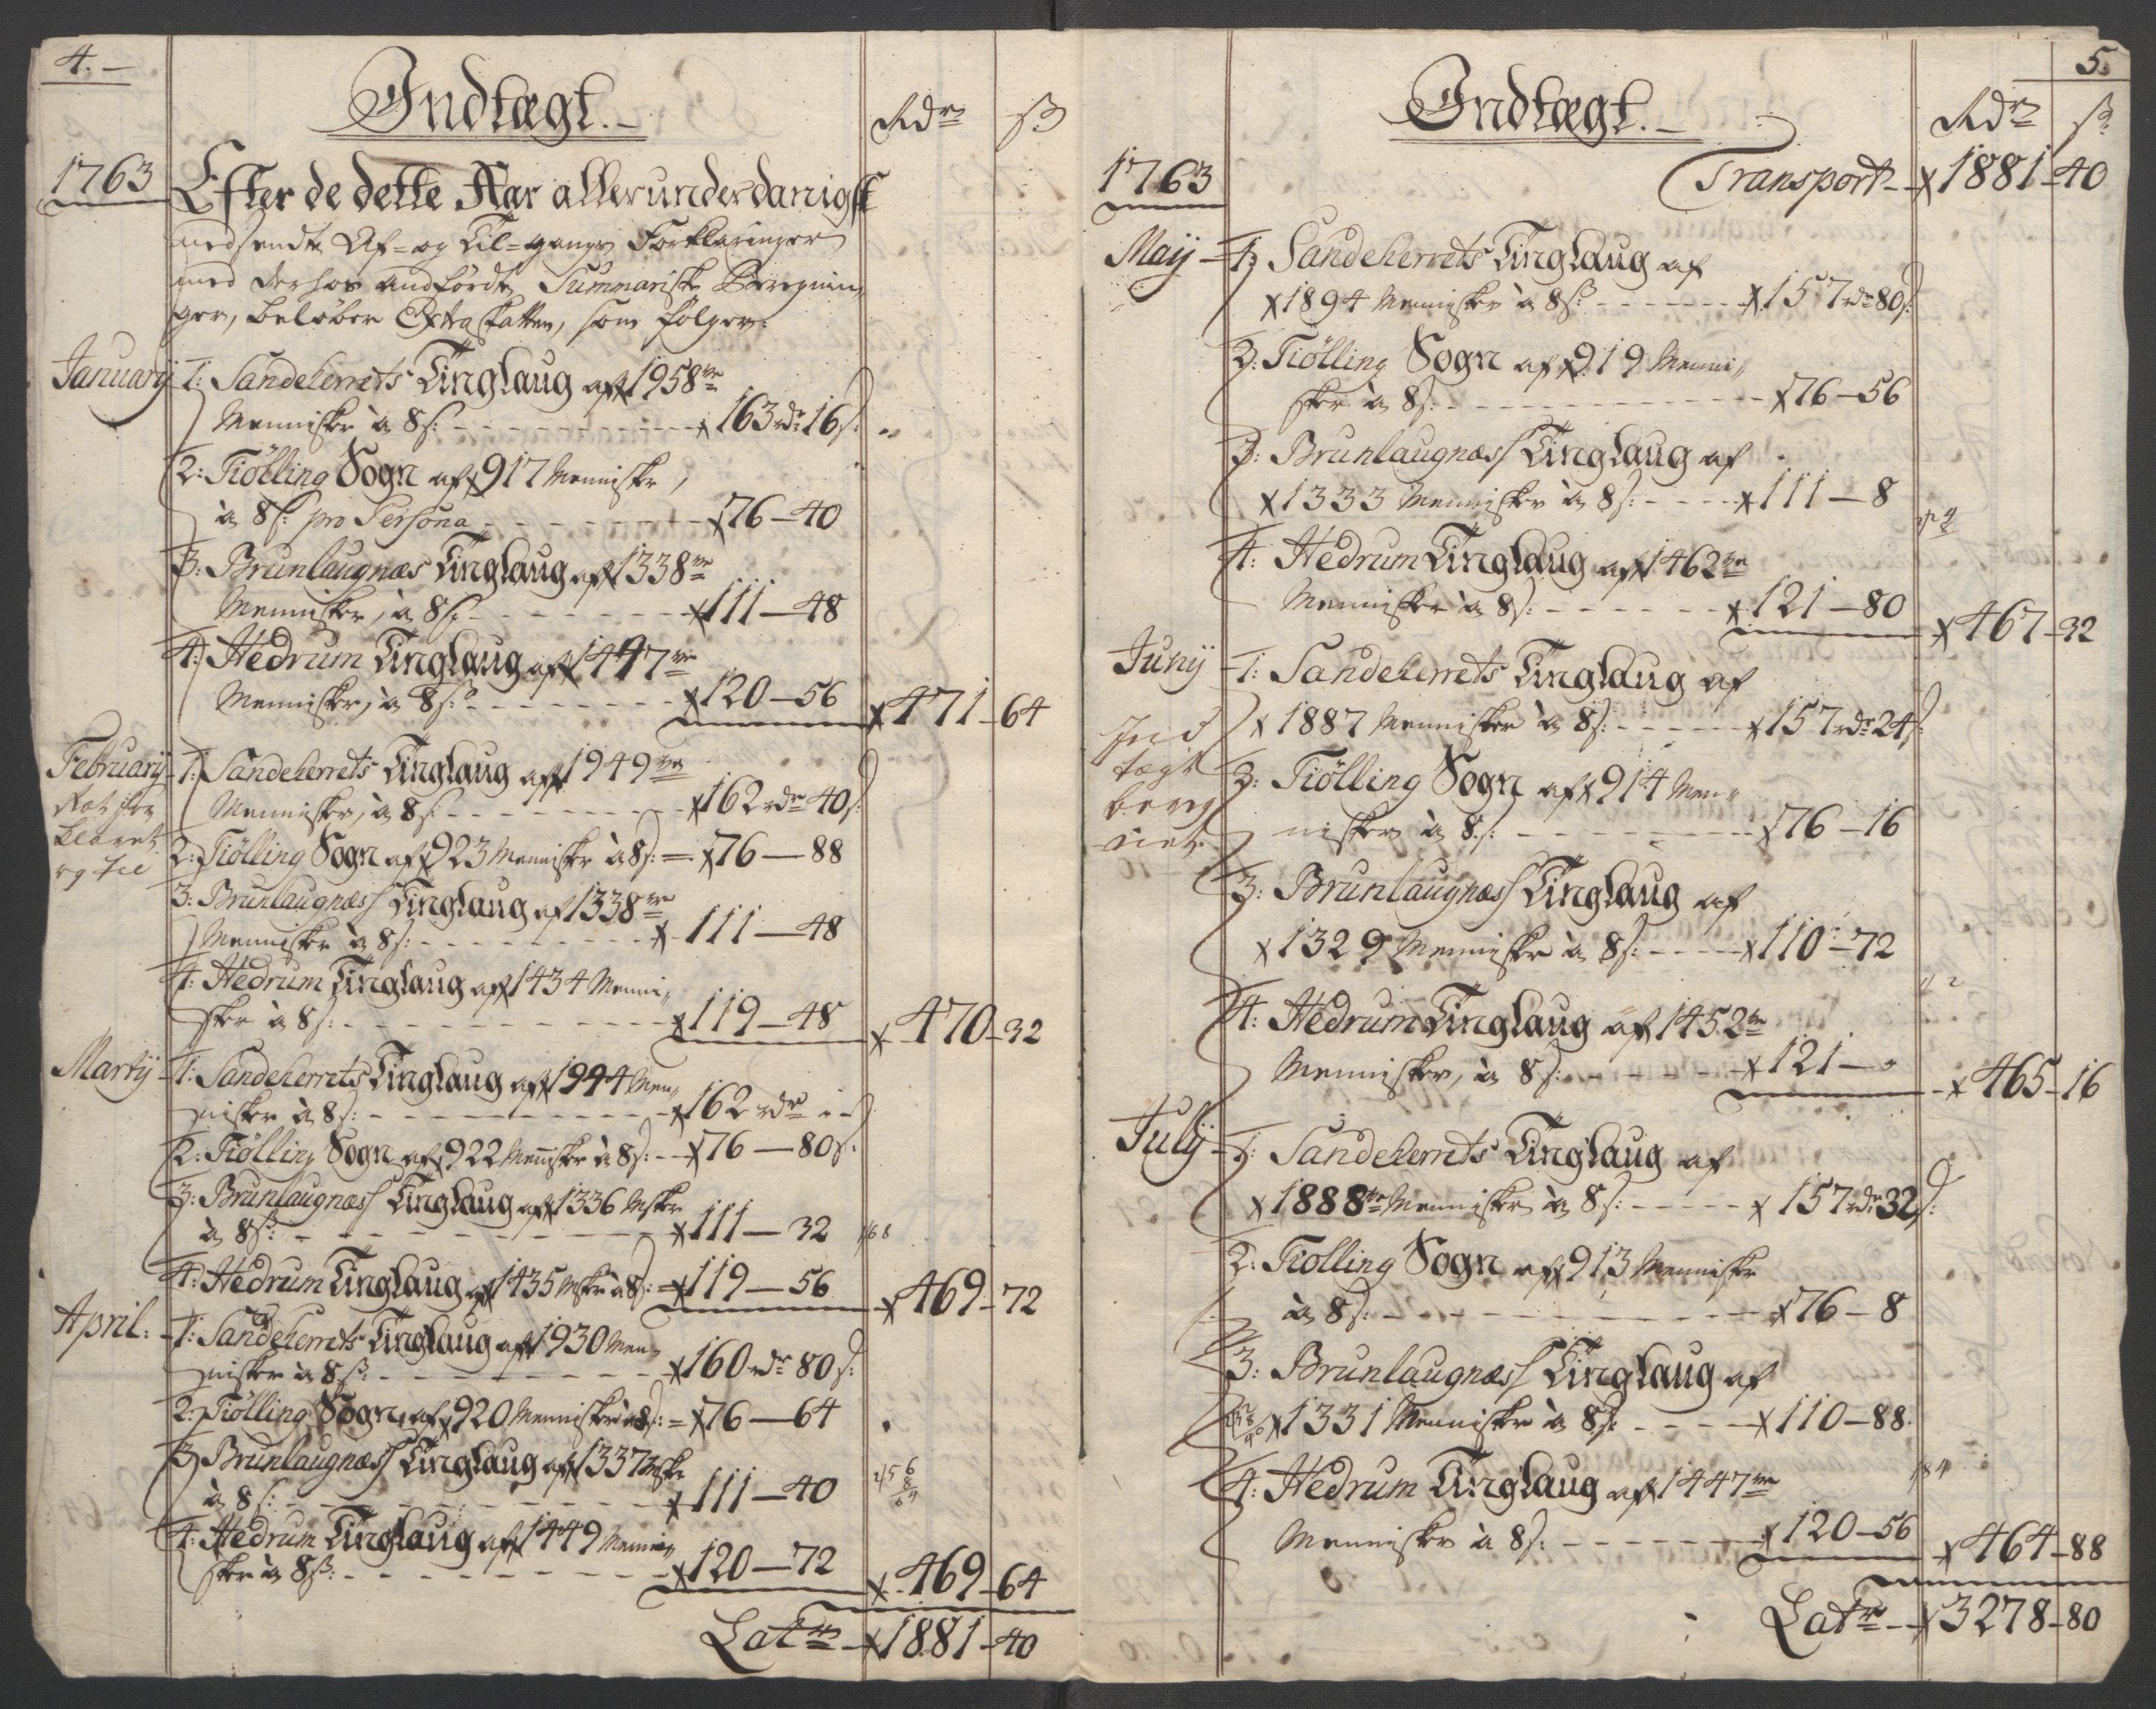 4.
Indtægt.
Rdr ß
1763
Efter de dette Aar allerunderdanigst
medsendte Af= og Til=gangs Forklaringer
med derhos andførdte Summariske Beregnin„
ger, beløber Extra skatten, som følger:
January 1: Sandeherrets Tinglaug aff 1958ve
Mennisker à 8 s: 163 rdr 16 s:
2: Tiølling Sogn aff 917 Menniske,
à 8 s: pro Persona 76 — 40
3: Brunlaugnæs Tinglaug aff 1338ve
Mennisker, à 8 s: 111 — 48
4: Hedrum Tinglaug aff 1447ve
Mennisker, à 8 s: 120 — 56 471 — 64
February 1: Sandeherrets Tinglaug aff 1949ve
Mennisker, à 8 s: 162 rdr 40 s:
2: Tiølling Sogn aff 923 Menniske à 8 s: 76 — 88
3: Brunlaugnæss Tinglaug af 1338ve
Menniske à 8 s: 111 — 48
4: Hedrum Tinglaug aff 1434 Menni„
sker à 8 s: 119 — 48 470 — 32
Martij 1: Sandeherrets Tinglaug aff 1944 Men„
nisker à 8 s: 162 rdr
2: Tiølling Sogn aff 922 Menniske à 8 s: 76 — 80 s:
3: Brunlaugnæss Tinglaug aff 1336 Mske
à 8 ß: 111 — 32 168
4: Hedrum Tinglaug aff 1435 Mske à 8 s: 119 — 56 469 — 72
April: 1: Sandeherrets Tinglaug aff 1930 Men„
nisker à 8 ß: 160 rdr 80 s:
2: Tiølling Sogn, aff 920 Menniske à 8 s: 76 — 64
3: Brunlaugnæss Tinglaug aff 1337 Mske
à 8 s: 111 — 40
4: Hedrum Tinglaug aff 1449 Menni„
sker à 8 ß: 120 — 72 469 — 64
Latr 1881 — 40
5.
Indtægt.
Rdr ß
1763
Transport 1881 — 40
Maij 1: Sandeherrets Tinglaug af
1894 Menniske à 8 ß: 157 rdr 80 s:
2: Tiølling Sogn aff 919 Menni„
sker à 8 s: 76 — 56
3: Brunlaugnæss Tinglaug af
1333 Menniske à 8 s: 111 — 8
4: Hedrum Tinglaug aff 1462ve
Menniske à 8 s: 121 — 80 467 — 32
Junij 1: Sandeherrets Tinglaug af
1887 Mennisker à 8 s: 157 rdr 24 s:
Ind
tægt
bereg
net.
2: Tiølling Sogn aff 914 Men„
nisker à 8 s: 76 — 16
3: Brunlaugnæss Tinglaug af
1329 Menniske à 8 s: 110 — 72
4: Hedrum Tinglaug aff 1452ve
Mennisker, à 8 s: 121 — 465 — 16
July 1: Sandeherrets Tinglaug af
1888ve Menniske à 8 s: 157 rdr 32 s:
2: Tiolling Sogn aff 913 Menniske
à 8 s: 76 — 8
3: Brunlaugnæss Tinglaug af
1331 Menniske à 8 s: 110 — 88
4: Hedrum Tinglaug aff 1447ve
184
Menniske à 8 s: 120 — 56 464 — 88
Latr 3278 — 80